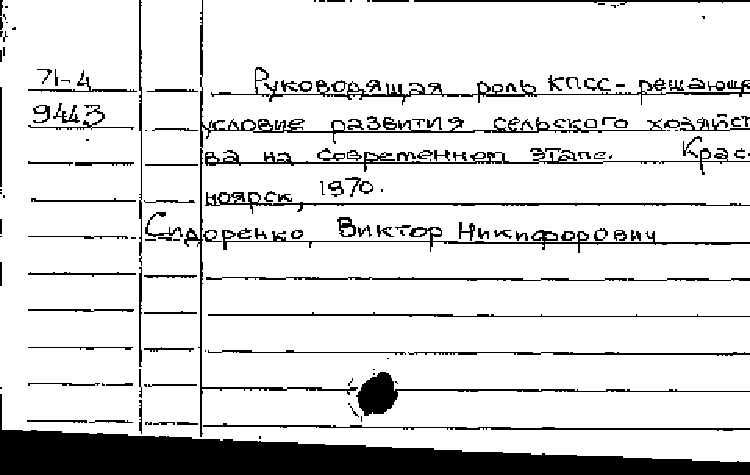 71-4
9443
Руководящая роль КПСС - решающе
условие развития сельского хозяйст-
ва на современном этапе. Крас-
ноярск, 1970.
Сидоренко, Виктор Никифорович